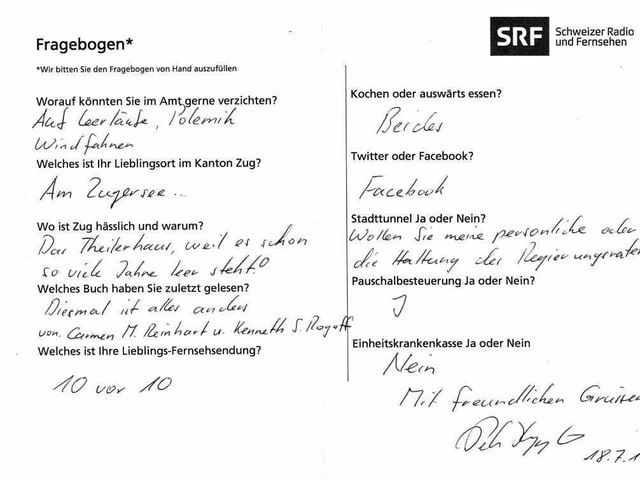 SRF Schweizer Radio
und Fernsehen
Fragebogen*
*Wir bitten Sie den Fragebogen von Hand auszufüllen
Worauf könnten Sie im Amt gerne verzichten?
Auf Leerläufe, Polemik
Windfahnen
Welches ist Ihr Lieblingsort im Kanton Zug?
Am Zugersee...
Wo ist Zug hässlich und warum?
Das Theilerhaus, weil es schon
so viele Jahre leer steht!
Welches Buch haben Sie zuletzt gelesen?
Diesmal ist alles anders
von Carmen M. Reinhart u. Kenneth S. Rogoff
Welches ist Ihre Lieblings-Fernsehsendung?
10 vor 10
Kochen oder auswärts essen?
Beides
Twitter oder Facebook?
Facebook
Stadttunnel Ja oder Nein?
Wollen Sie meine persönliche oder
die Haltung des Regierungsrates
Pauschalbesteuerung Ja oder Nein?
J
Einheitskrankenkasse Ja oder Nein
Nein
Mit freundlichen Grüssen
18.7.1